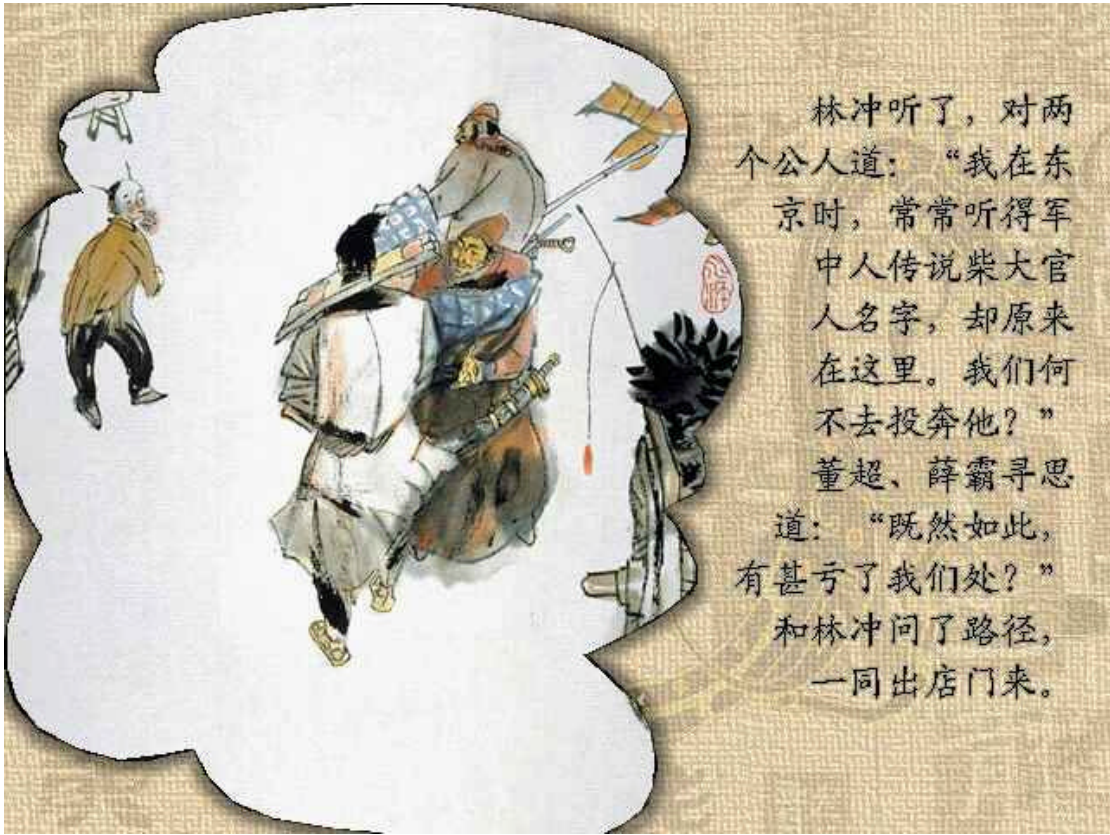 林冲听了，对两
个公人道：“我在东
京时，常常听得军
中人传说柴大官
人名字，却原来
在这里。我们何
不去投奔他？”
董超、薛霸寻思
道：“既然如此，
有甚亏了我们处？”
和林冲问了路径，
一同出店门来。